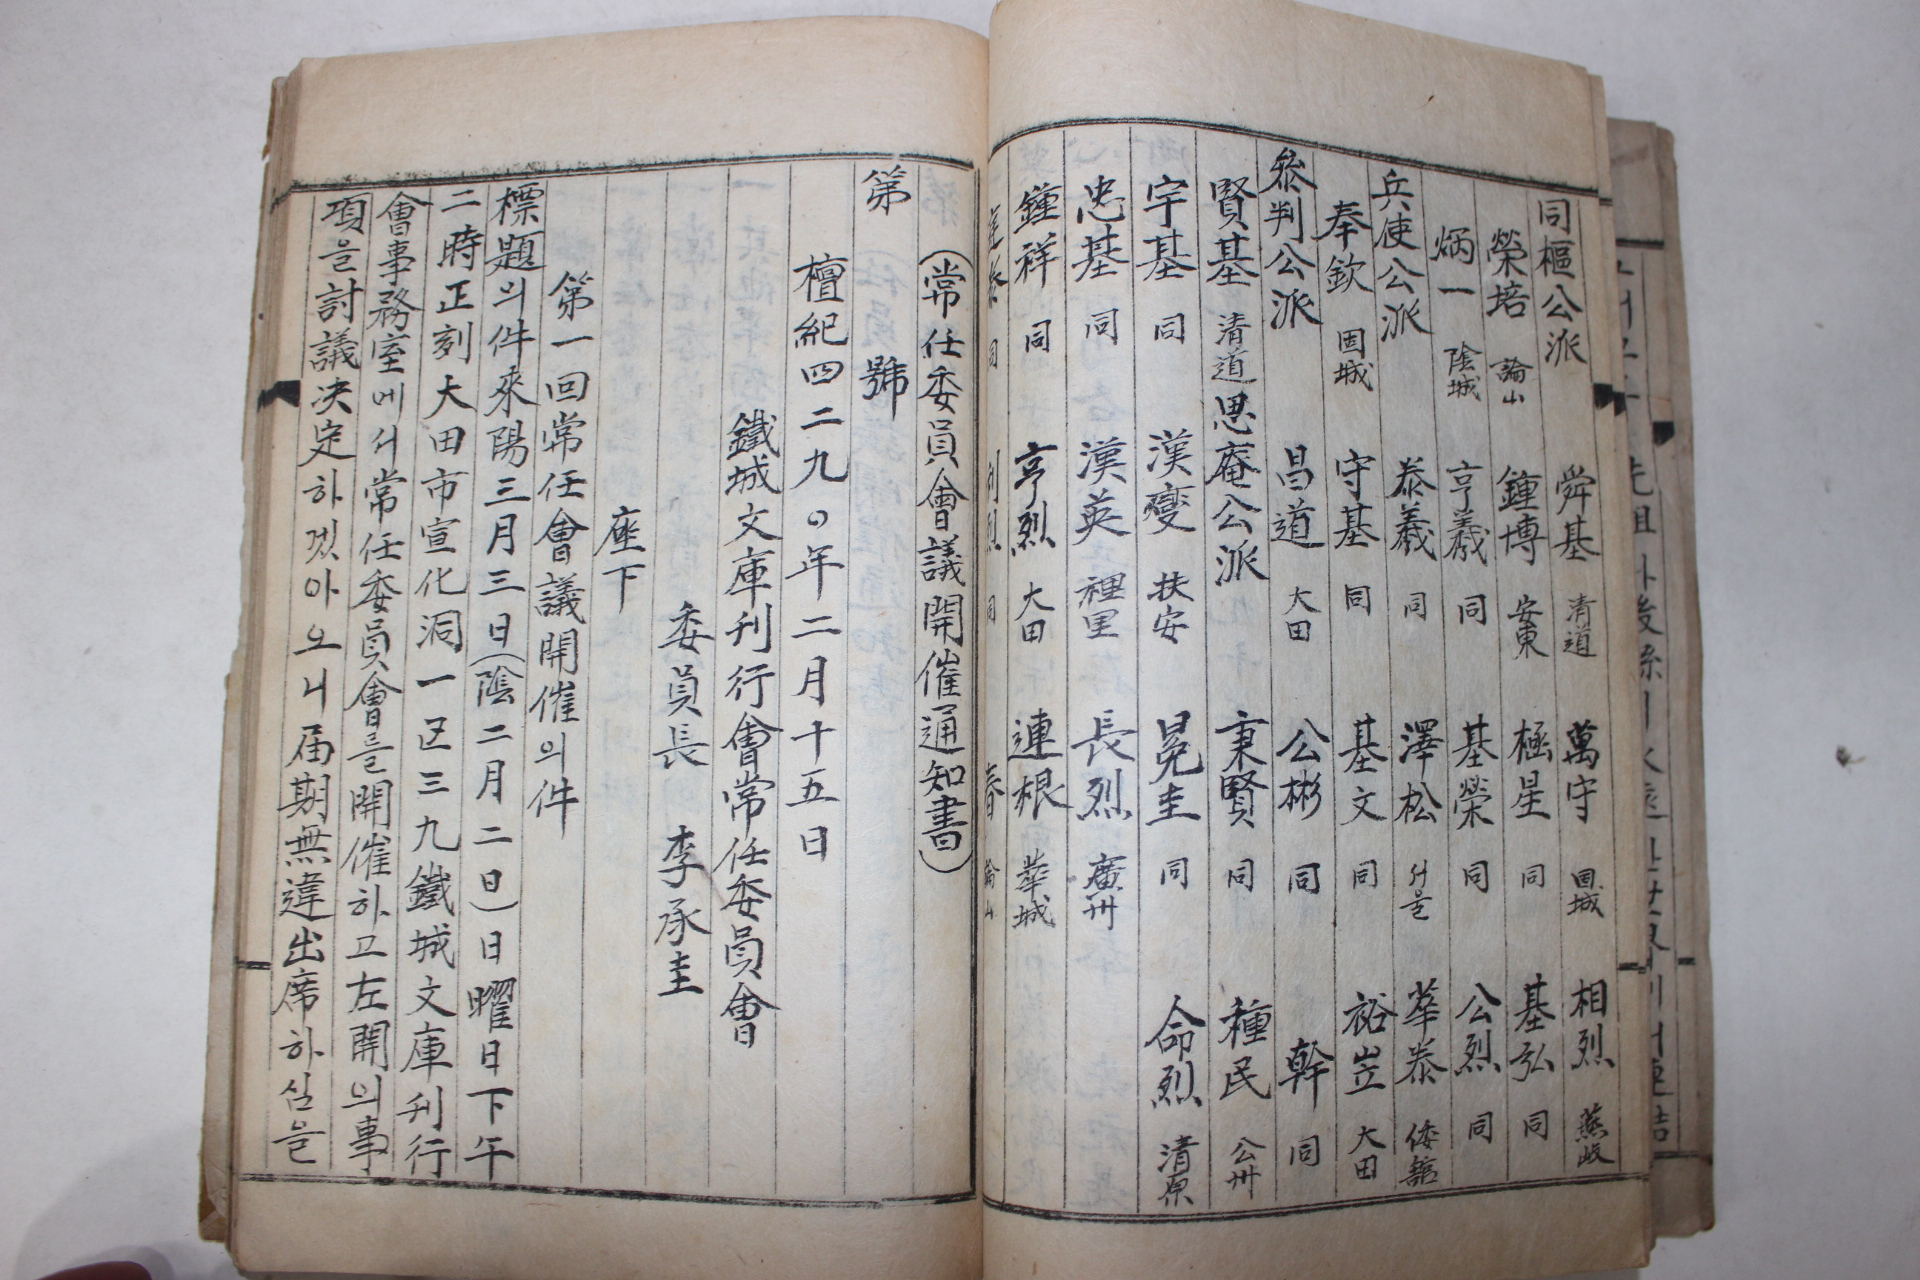 同樞公派 舜基 清道 萬守 固城 相烈 燕岐
榮培 論山 鍾博 安東 極星 同 基弘 同
炳一 陰城 亨羲 同 基榮 同 公烈 同
兵使公派 泰羲 同 澤松 서울 華泰 倭舘
奉欽 固城 守基 同 基文 同 裕岦 大田
參判公派 昌道 大田 公彬 同 幹 同
賢基 清道 思庵公派 秉賢 同 種民 公州
宇基 同 漢燮 扶安 冕圭 同 命烈 清原
忠基 同 漢英 裡里 長烈 廣州
鍾祥 同 亨烈 大田 連根 華城
(常任委員會議開催通知書)
第 號
檀紀四二九〇年二月十五日
鐵城文庫刊行會常任委員會
委員長 李承圭
座下
第一回常任會議開催의件
標題의件來陽三月三日(陰二月二日)日曜日下午
二時正刻大田市宣化洞一区三九鐵城文庫刊行
會事務室에서常任委員會를開催하고左開의事
項을討議決定하겠아오니届期無違出席하심을